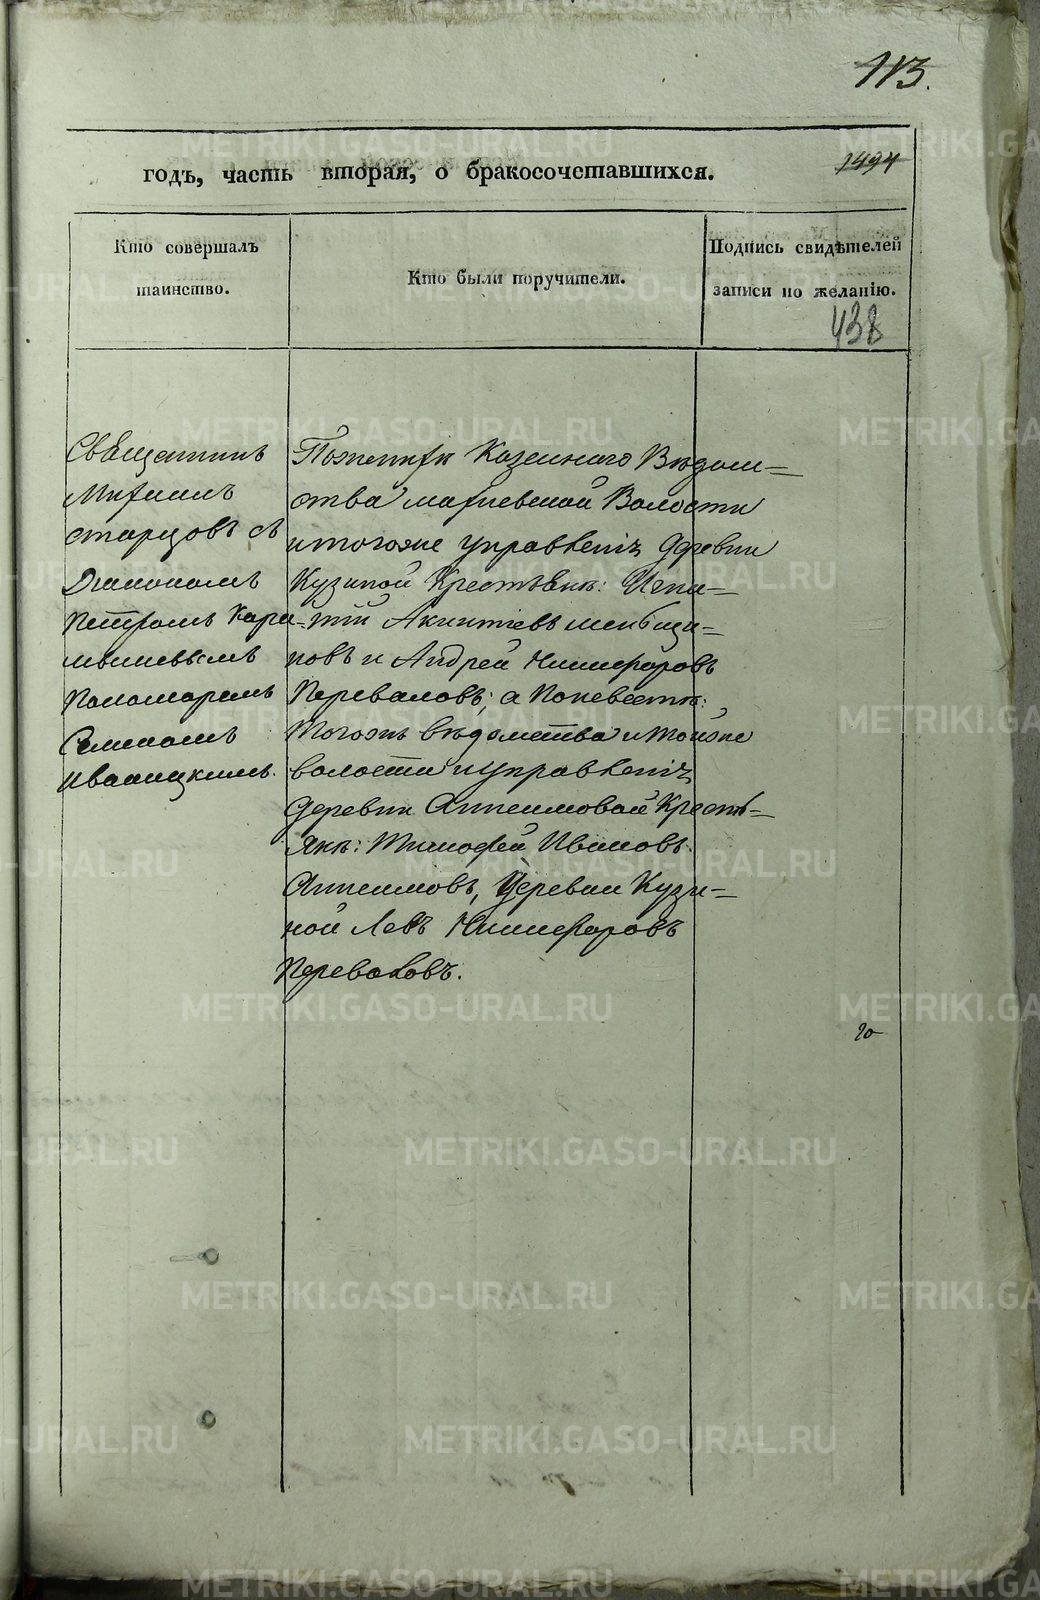 113.
годъ, часть вторая, о бракосочетавшихся.
1494
Кто совершалъ таинство.
Кто были поручители.
Подпись свидѣтелей записи по желанію.
438
Священникъ
Михаилъ
старцовъ съ
Діакономъ
Петромъ
Пономаремъ
Семеномъ
Иваницкимъ.
По женихѣ Казеннаго Вѣдом=
ства Волости
итогоже управленія Деревни
Кузиной Крестьянѣ: Игна=
тій меньщи=
ковъ и Андрей Никифоровъ
Переваловъ; а Поневестѣ:
Тогожъ вѣдомства итойже
волости иуправленія
Деревни Антеимовой Кресть=
янѣ: Тимофей Ивановъ
Антеимовъ, Деревни Кузи=
ной Левъ Никифоровъ
Переваловъ.
METRIKI.GASO-URAL.RU